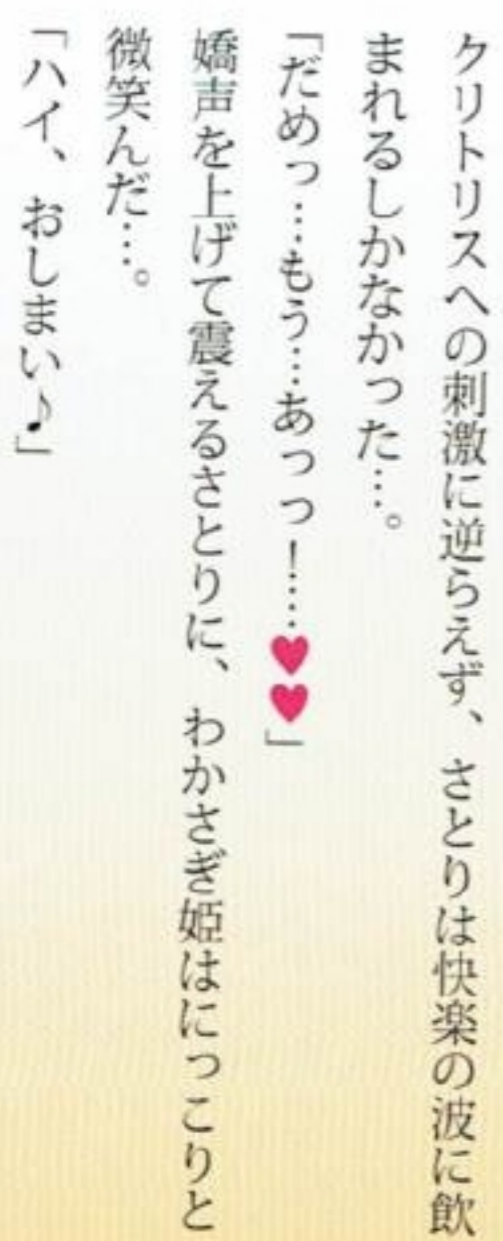 クリトリスへの刺激に逆らえず、さとりは快楽の波に飲
まれるしかなかった…。
「だめっ…もう…あっっ！…♥♥」
嬌声を上げて震えるさとりに、わかさぎ姫はにっこりと
微笑んだ…。
「ハイ、おしまい♪」